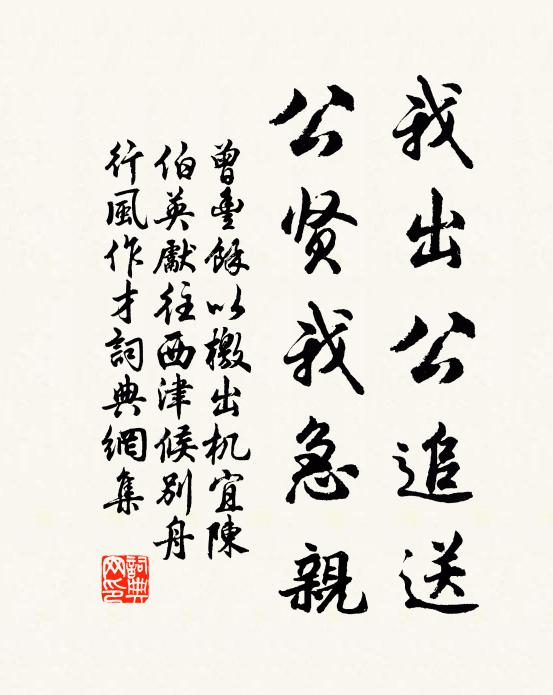 我出公追送
公贤我急親
曾豊餘以檄出机宜陳
伯英獻往西津候别舟
行風作才詞典網集
詞典网印